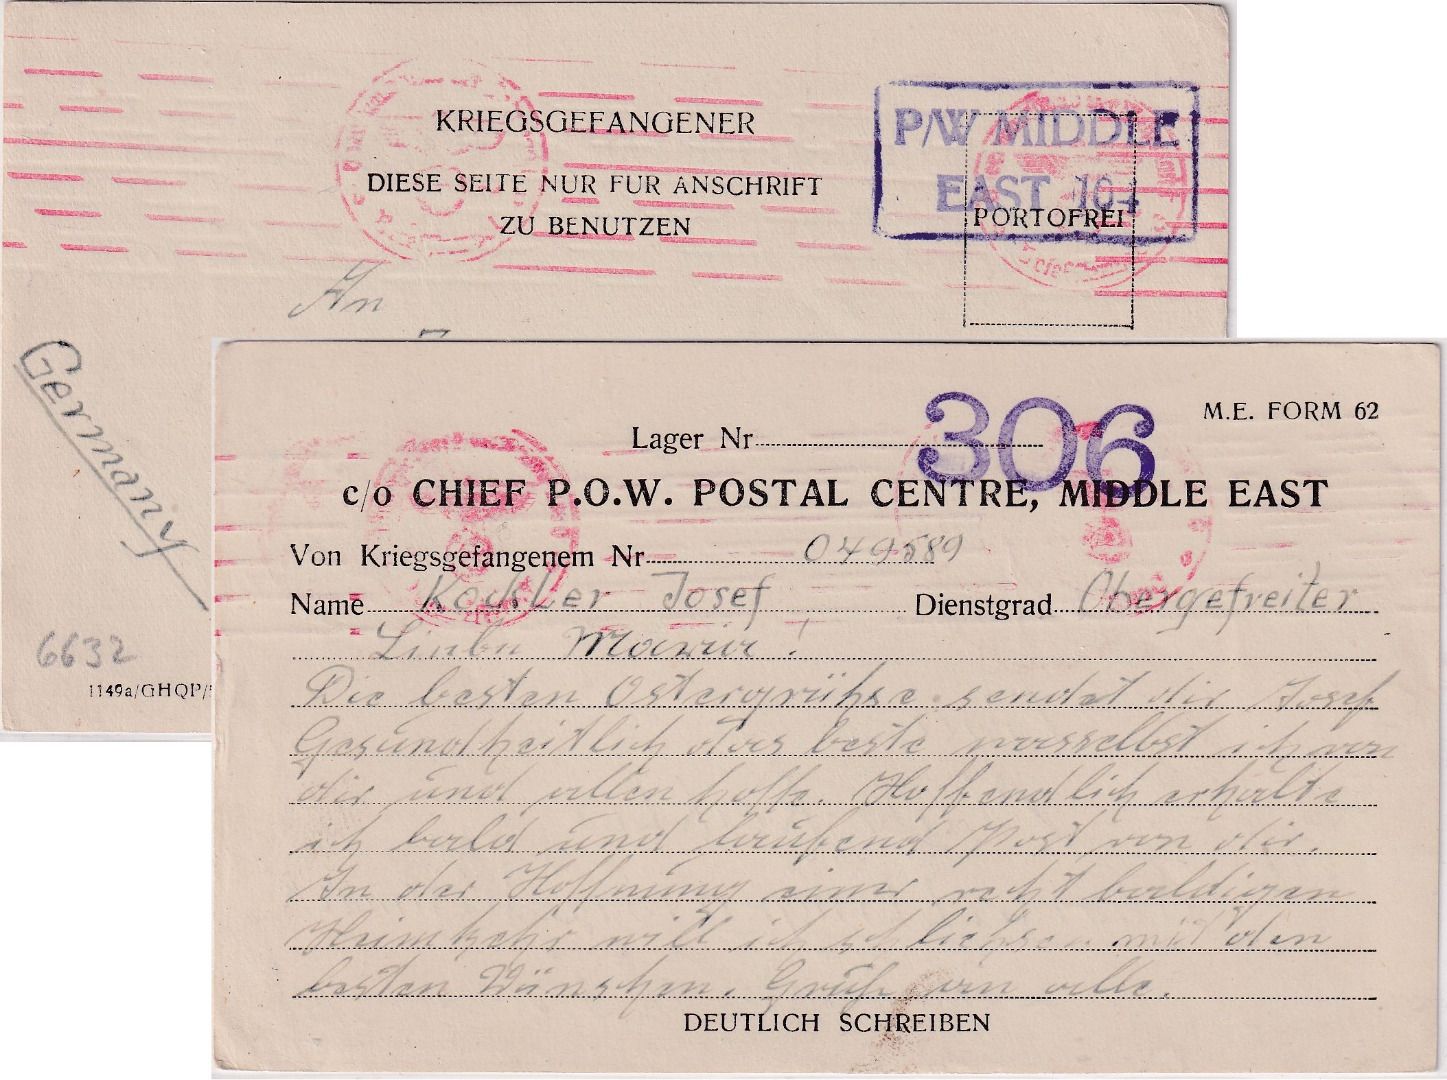 KRIEGSGEFANGENER
DIESE SEITE NUR FUR ANSCHRIFT
ZU BENUTZEN
P/W MIDDLE
EAST 104
PORTOFREI
An
Germany
6632
1149a/GHQP/
306
M.E. FORM 62
Lager Nr
c/o CHIEF P.O.W. POSTAL CENTRE, MIDDLE EAST
Von Kriegsgefangenem Nr 049589
Name Josef Dienstgrad Obergefreiter
Liebe !
Die besten Ostergrühse sendet dir Josef
Gesundheitlich das beste wasselbst ich von
dir und allen hoffe. Hoffendlich erhalte
ich bald und laufend Post von dir.
In der Hoffnung einer recht baldigen
Heimkehr will ich schliehsen mit den
besten Wünschen. Grühse an alle.
DEUTLICH SCHREIBEN